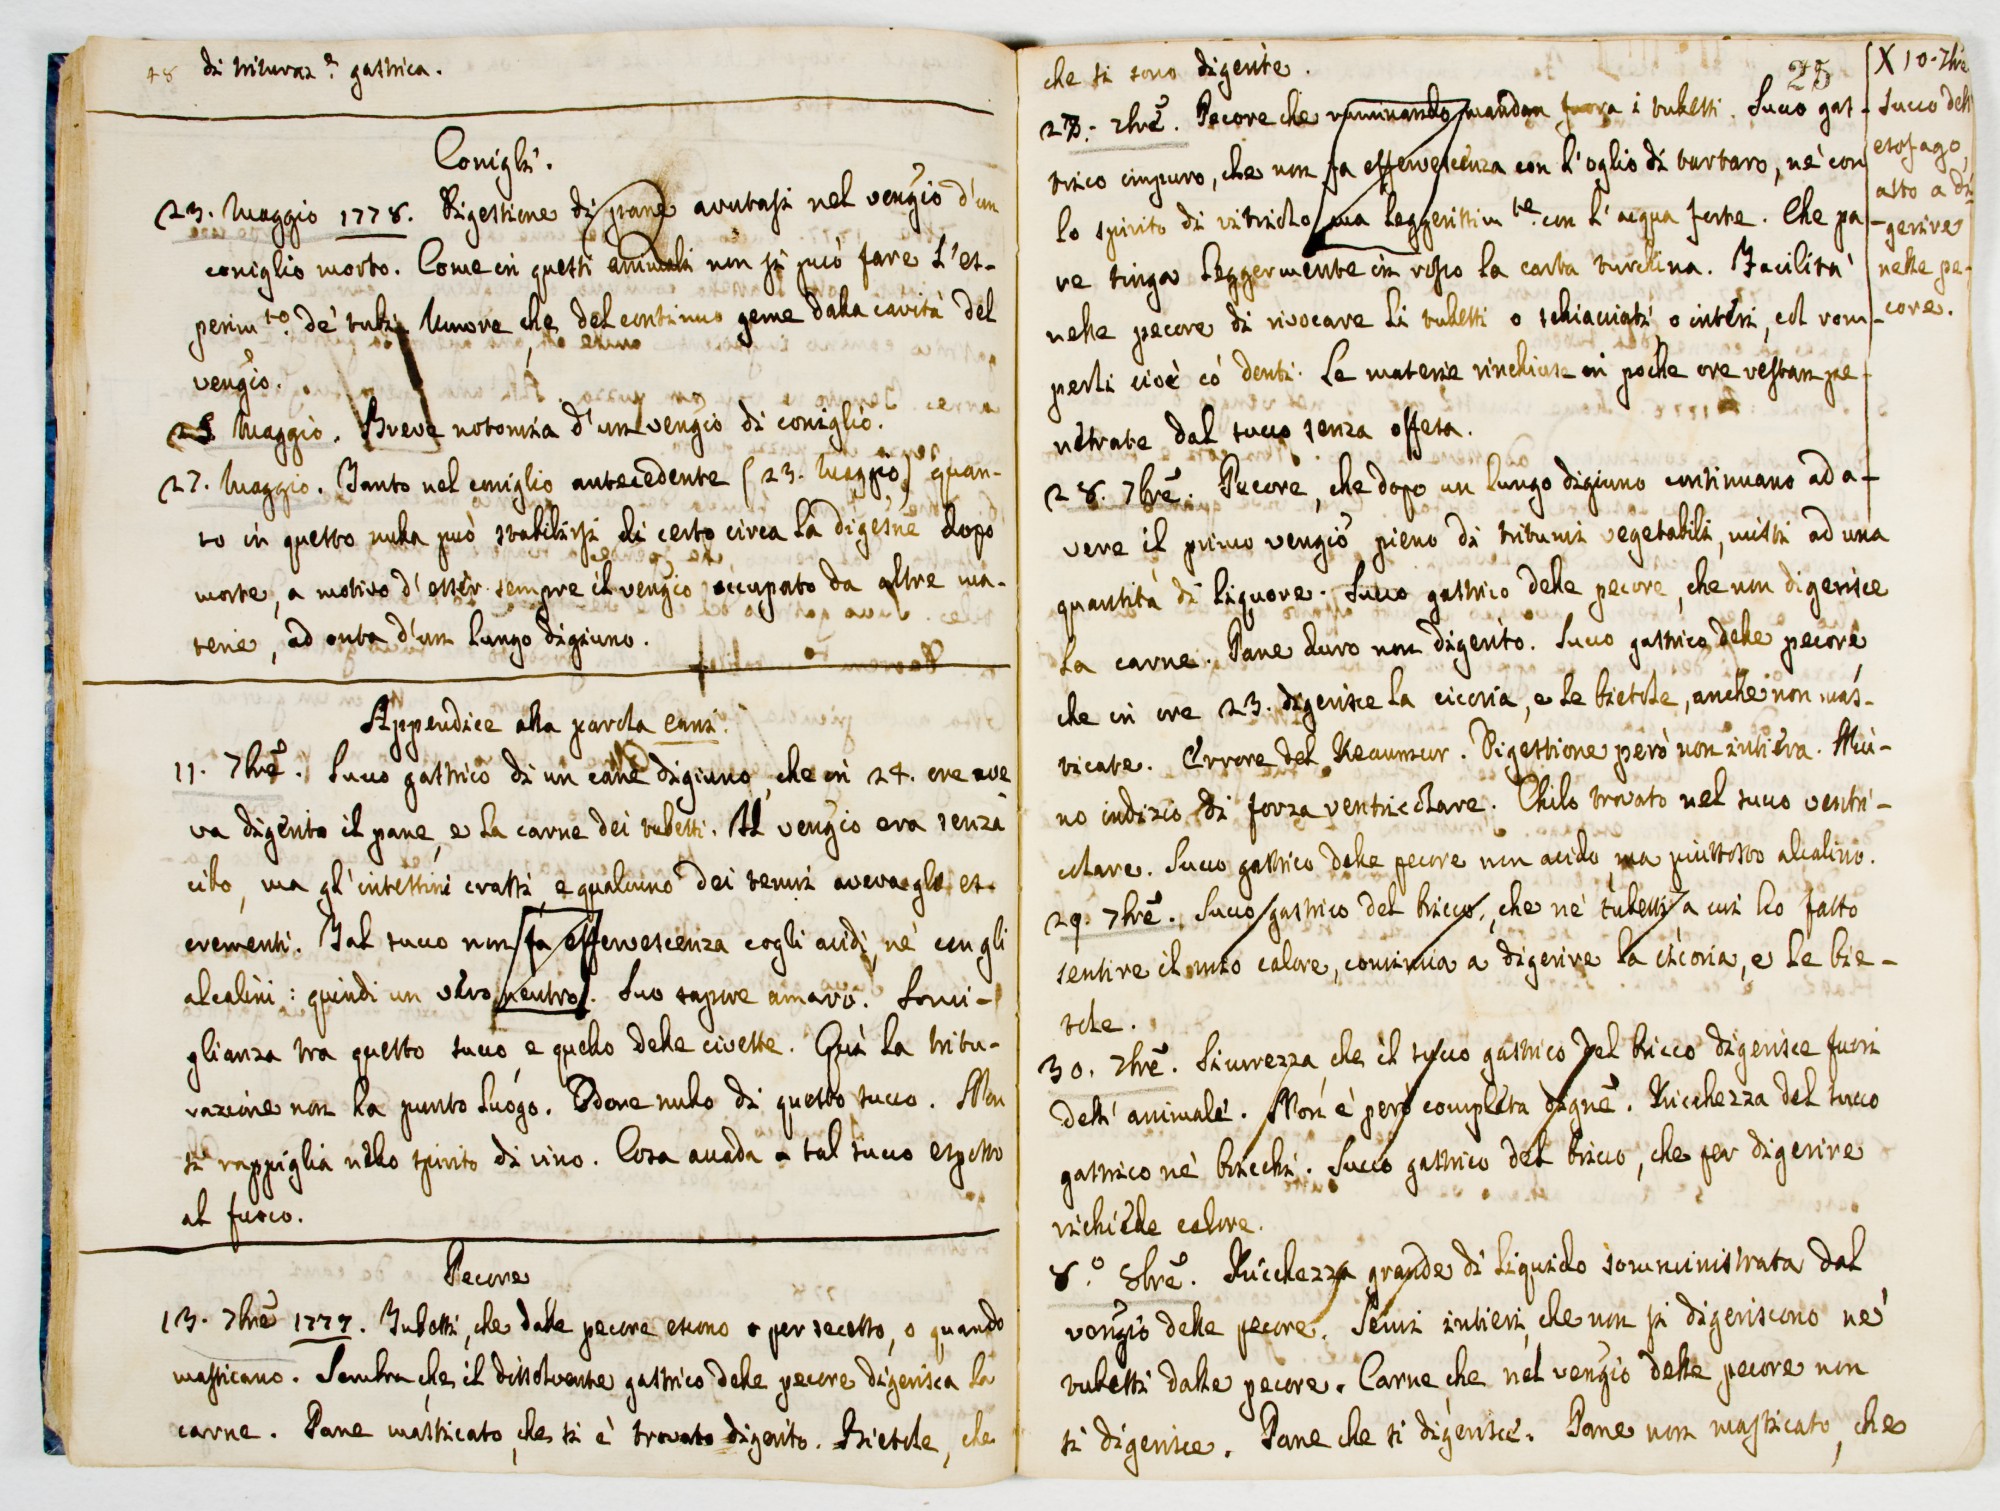 48 di trituraz.e gastrica.
Conigli.
23. Maggio 1778. Digestione di pane avutasi nel ven.o d'un
coniglio morto. Come in questi animali non si può fare l'es-
perim.to de' tubi. Umore, che del continuo geme dalla cavità del
ven.o.
25 Maggio. Breve notomia d'un ven.o di coniglio.
27. Maggio. Tanto nel coniglio antecedente (23. Maggio) quan-
to in questo nulla può stabilirsi di certo circa la digesne dopo
morte, a motivo d'esser sempre il ven.o occupato da altre ma-
terie, ad onta d'un lungo digiuno.
Appendice alla parola cani.
11. 7bre. Succo gastrico di un cane digiuno, che in 24. ore ave
va digerito il pane, e la carne dei tubetti. Il ven.o era senza
cibo, ma gl'intestini crassi, e qualcuno dei tenui aveva gli es-
crementi. Tal succo non fa effervescenza cogli acidi, nè con gli
alcalini: quindi un vero neutro. Suo sapore amaro. Somi-
glianza tra questo succo, e quello delle civette. Quì la tritu-
razione non ha punto luogo. Odore nullo di questo succo. Non
si rappiglia nello spirito di vino. Cosa accada a tal succo esposto
al fuoco.
Pecore
13. 7bre 1777. Tubetti, che dalle pecore escono o per secesso, o quando
masticano. Sembra che il dissolvente gastrico delle pecore digerisca la
carne. Pane masticato, che si è trovato digerito. Bietole, che
che si sono digerite.
25
27. 7bre. Pecore che ruminando mandan fuora i tubetti. Succo gas-
trico impuro, che non fa effervescenza con l'oglio di tartaro, nè con
lo spirito di vitriolo, ma leggerissim.te con l'acqua forte. Che pa
re tinga leggermente in rosso la carta turchina. Facilità
nelle pecore di rivocare li tubetti o schiacciati, o interi, col rom-
perli cioè có denti. Le materie rinchiuse in poche ore restan pe-
netrate dal succo senza offesa.
28. 7bre. Pecore, che dopo un lungo digiuno continuano ad a-
vere il primo ven.o pieno di tritumi vegetabili, misti ad una
quantità di liquore. Succo gastrico delle pecore, che non digerisce
la carne. Pane duro non digerito. Succo gastrico delle pecore,
che in ore 23. digerisce la cicoria, e le bietole, anche non mas-
ticate. Errore del Reaumur. Digestione però non intiera. Niu-
no indizio di forza ventricolare. Chilo trovato nel succo ventri-
colare. Succo gastrico delle pecore non acido, ma piuttosto alcalino.
29. 7bre. Succo gastrico del bricco, che ne' tubetti a cui ho fatto
sentire il mio calore, comincia a digerire la cicoria, e le bie-
tole.
30. 7bre. Sicurezza che il succo gastrico del bricco digerisce fuori
dell'animale. Non è però completa digne. Ricchezza del succo
gastrico ne' bricchi. Succo gastrico del bricco, che per digerire
richiede calore.
8.o 8bre. Ricchezza grande di liquido somministrata dal
ven.o delle pecore. Semi intieri, che non si digeriscono ne'
tubetti dalle pecore. Carne che nel ven.o delle pecore non
si digerisce. Pane che si digerisce. Pane non masticato, che
X 10. 7bre
Succo dell'
esofago,
atto a di-
gerire
nelle pe-
core.